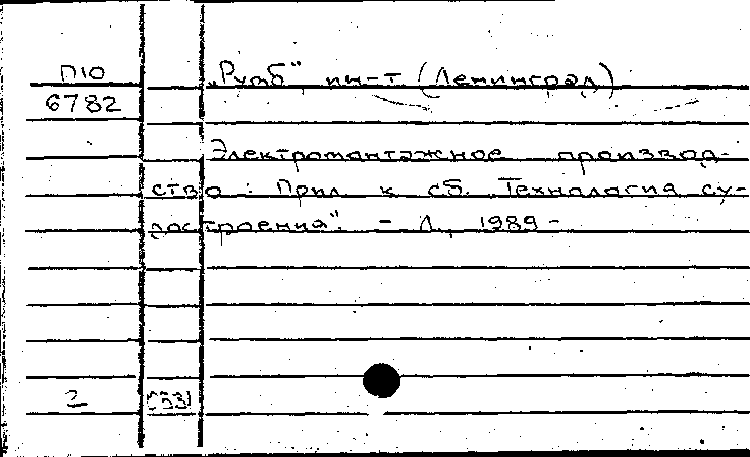 П10
6782
„Румб" ин-т (Ленинград)
Электромонтажное производ-
ство : Прил. к сб. „Технология су-
достроения". - Л., 1989 -
2